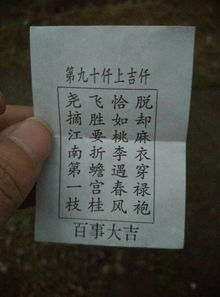 第九十仟上吉仟
脱却麻衣穿禄袍
恰如桃李遇春风
飞胜要折蟾宫桂
尧摘江南第一枝
百事大吉